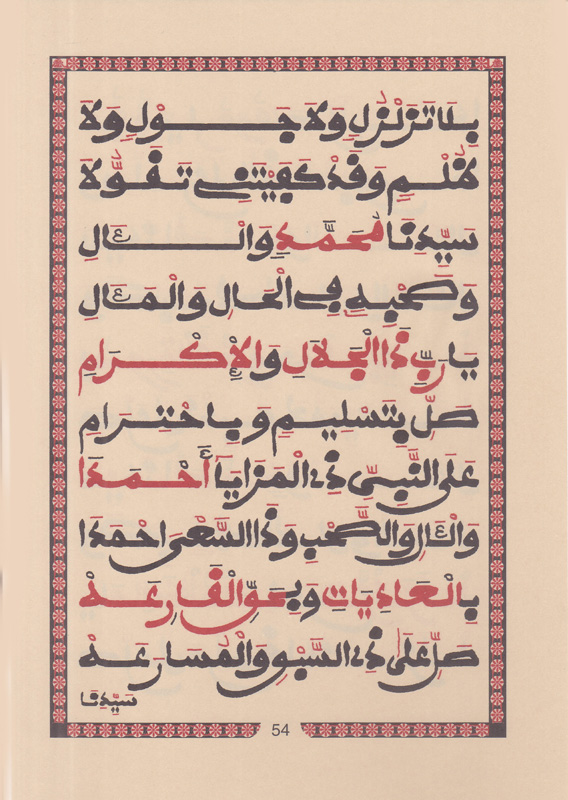 بِلَا تَزَلْزُلٍ وَلَا جَـوْلٍ وَلَا
ظُلْمٍ وَقَدْ كَفَيْتَنِي تَقَوُّلَا
سَيِّدِنَا مُحَمَّدٍ وَالْـئَالِ
وَصَحْبِهِ فِي الْحَالِ وَالْمَـئَالِ
يَا رَبِّ ذَا الْجَلَالِ وَالْإِكْرَامِ
صَلِّ بِتَسْلِيمٍ وَبِاحْتِرَامِ
عَلَى النَّبِيِّ ذِي الْمَزَايَا أَحْمَدَا
وَالْـئَالِ وَالصَّحْبِ وَذَا السَّعْيَ احْمَدَا
بِالْعَادِيَاتِ وَبِحَقِّ الْقَارِعَهْ
صَلِّ عَلَى ذِي السَّبْقِ وَالْمُسَارَعَهْ
سَيِّدِنَا
54